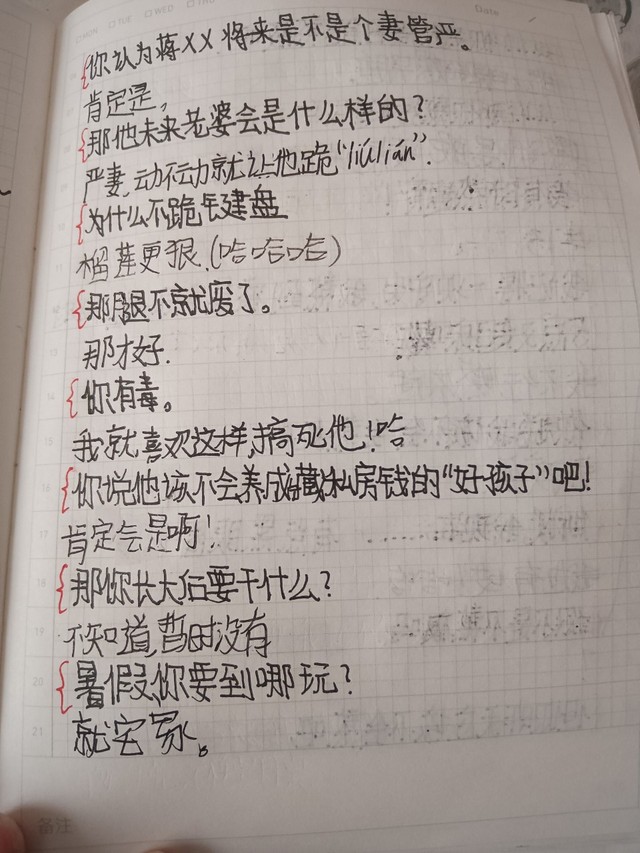 MON TUE WED THU
Date
你认为蒋XX将来是不是个妻管严。
肯定是,
那他未来老婆会是什么样的?
严妻,动不动就让他跪"liúlián".
为什么不跪键盘
榴莲更狠.(哈哈哈)
那腿不就废了。
那才好.
你有毒。
我就喜欢这样,搞死他!哈
你说他该不会养成藏私房钱的"好孩子"吧!
肯定会是啊!
那你长大后要干什么?
不知道,暂时没有
暑假,你要到哪玩?
就宅家。
备注